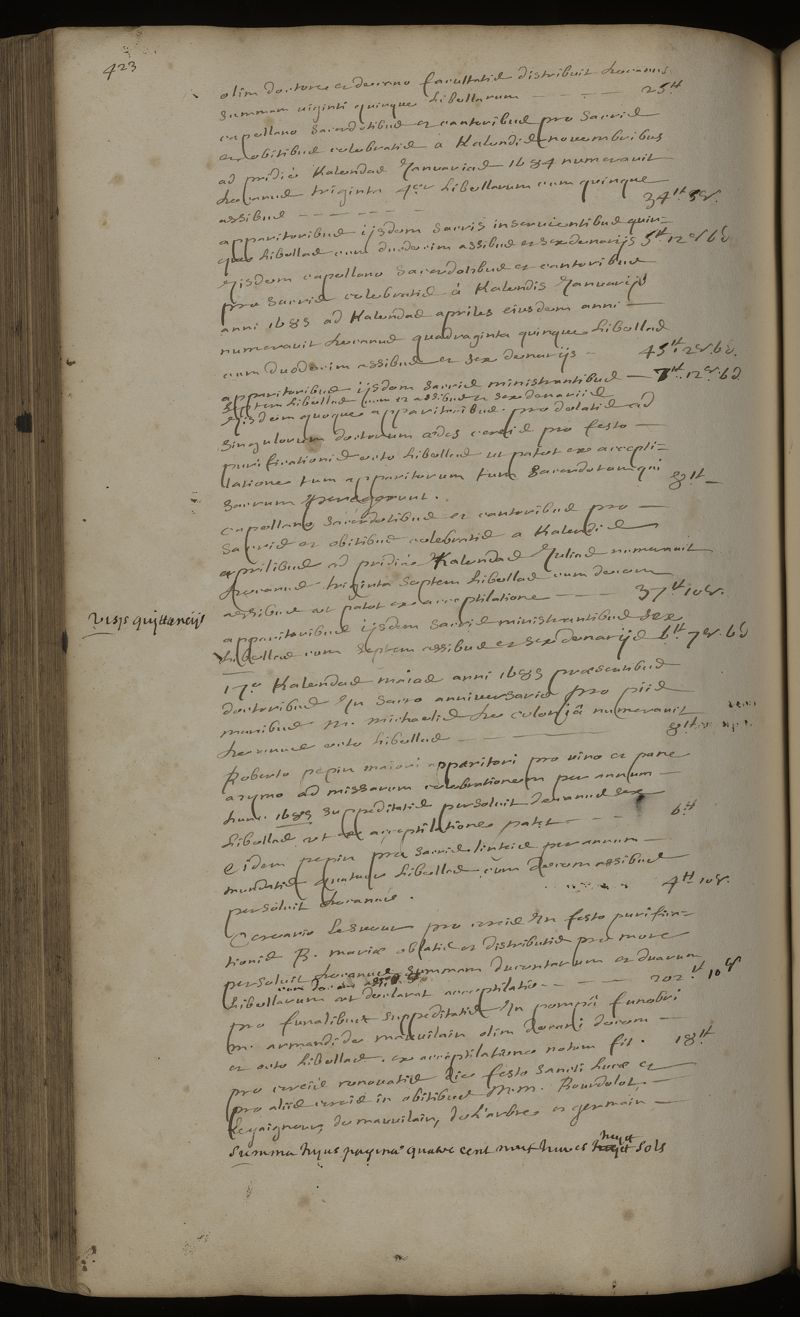 423
olim doctore et decano facultatis distribuit decanus
summam viginti quinque libellarum — — — 25 lt
capellano sacerdotibus et cantoribus pro sacris
et obitibus celebratis a Kalendis novembribus
ad pridie Kalendas Januarias 1684 numeravit
decanus triginta 4or libellarum cum quinque
assibus — — — — — 34 lt 5 s.
apparitoribus ijsdem sacris inservientibus quin-
que libellas cum duodecim assibus et sex denarijs 5 lt 12 s 6 d
Eijsdem capellano sacerdotibus et cantoribus
pro sacris celebratis à Kalendis Januarijs
anni 1685 ad Kalendas apriles eiusdem anni —
numeravit decanus quadraginta quinque libellas
cum duodecim assibus et sex denarijs — 45 lt 12 s. 6 d.
apparitoribus ijsdem sacris ministrantibus — 7 lt. 12 s. 6 d
septem libellas cum 12 assibus et sex denariis
Eijsdem quoque apparitoribus pro delatis ad
singulorum doctorum ædes cereis pro festo —
purificationis octo libellas ut patet ex accepti-
latione tum apparitorum tum sacerdotum qui
sacrum peregerunt. 8 lt —
capellano sacerdotibus et cantoribus pro —
sacris et obitibus celebratis a Kalendis
aprilibus ad pridie Kalendas Julias numeravit
decanus triginta septem libellas cum decem
assibus ut patet ex acceptilatione — — — 37 lt 10 s.
visis quijttancijs
apparitoribus ijsdem sacris ministrantibus sex
libellas cum septem assibus et sex denarijs 6 lt 7 s. 6 d
17o Kalendas maias anni 1685 præsentibus
doctoribus In sacro anniversario pro piis
manibus m. michaelis de colonjâ numeravit
decanus octo libellas — — — 8 lt
Roberto pepin maiori apparitori pro vino et pane
azymo ad missarum celebrationem per annum —
hunc 1685 suppeditatis persoluit decanus sex
libellas ut ex acceptilatione patet — — — 6 lt
Eidem pepin pro sacris linteis per annum —
mundatis quatuor libellas cum decem assibus
persoluit decanus. 4 lt 10 s.
Cereario lesueur pro cereis In festo purifica-
tionis B. mariæ oblatis et distributis pro more
persoluit decanus summam ducentarum et duarum
cum decem assibus
libellarum ut declarat acceptilatio — — — 202 lt 10 s
pro funalibus suppeditatis In pompâ funebri
m. armandi de mauvilain olim decani decem —
et octo libellas. ex acceptilatione notum fit. 18 lt
pro cereis renovatis die festo sancti lucæ et
pro aliis cereis in obitibus m.m. Bourdelot,
legaigneur, de mauvilain, de l'arbre et germain —
huijt
summa hujus paginæ quatre cent neuf livres huijt sols